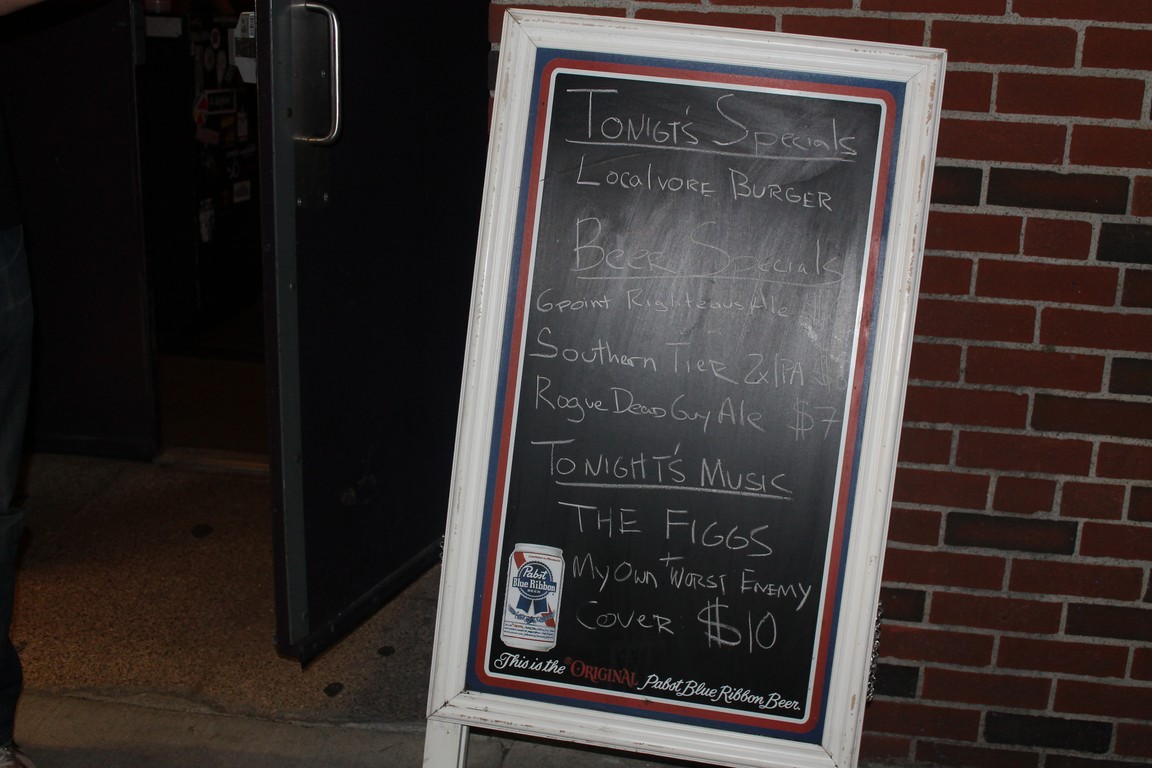 TONIGT'S Specials
LocalvorE BURGER
Beer Specials
6point Righteous Ale
Southern TiER 2XIPA
Rogue Dead Guy Ale $7
TONIGHT'S MUSIC
THE FIGGS
+
My Own WORST ENEMY
COVER $10
Pabst
Blue Ribbon
BEER
This is the ORIGINAL Pabst Blue Ribbon Beer.